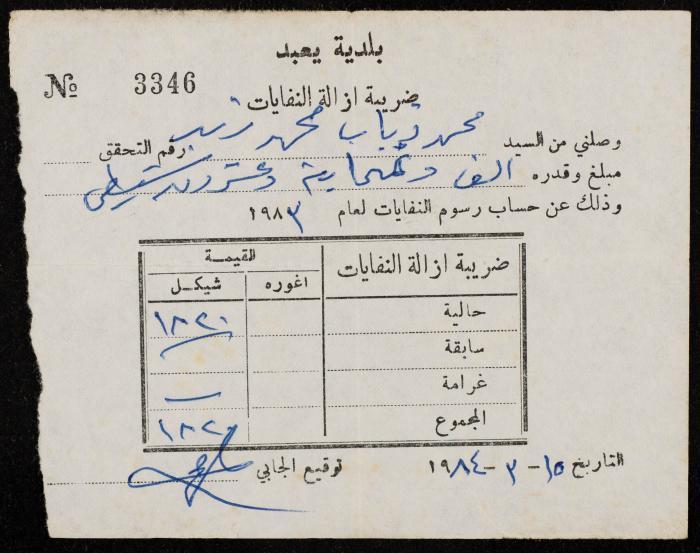 بلدية يعبد
№ 3346
ضريبة ازالة النفايات
وصلني من السيد محمد ذياب محمد زيد رقم التحقق
مبلغ وقدره الف وثمانماية وعشرون شيقل
وذلك عن حساب رسوم النفايات لعام ١٩٨٣
ضريبة ازالة النفايات القيمة
اغوره شيكل
حالية ١٨٢٠
سابقة
غرامة —
المجموع ١٨٢٠
التاريخ ١٥-٣-١٩٨٤ توقيع الجابي